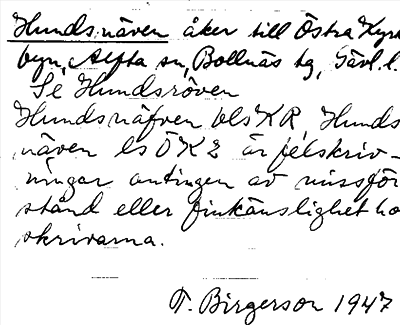 Hundsnäven åker till Östra Kyrk
byn, Alfta sn, Bollnäs tg, Gävl. l.
Se Hundsröven
Hundsnäfven bls KR, Hunds
näven ls ÖK 2 är felskriv-
ningar antingen av missför
stånd eller finkänslighet ho
skrivarna.
T. Birgerson 1947